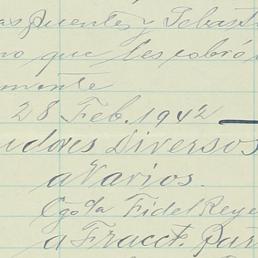 as puente, y Sebast
no que les cobró
mente
28 Feb. 1942
udores Diversos
a Varios.
Fidel Reye
a Fracct. Par